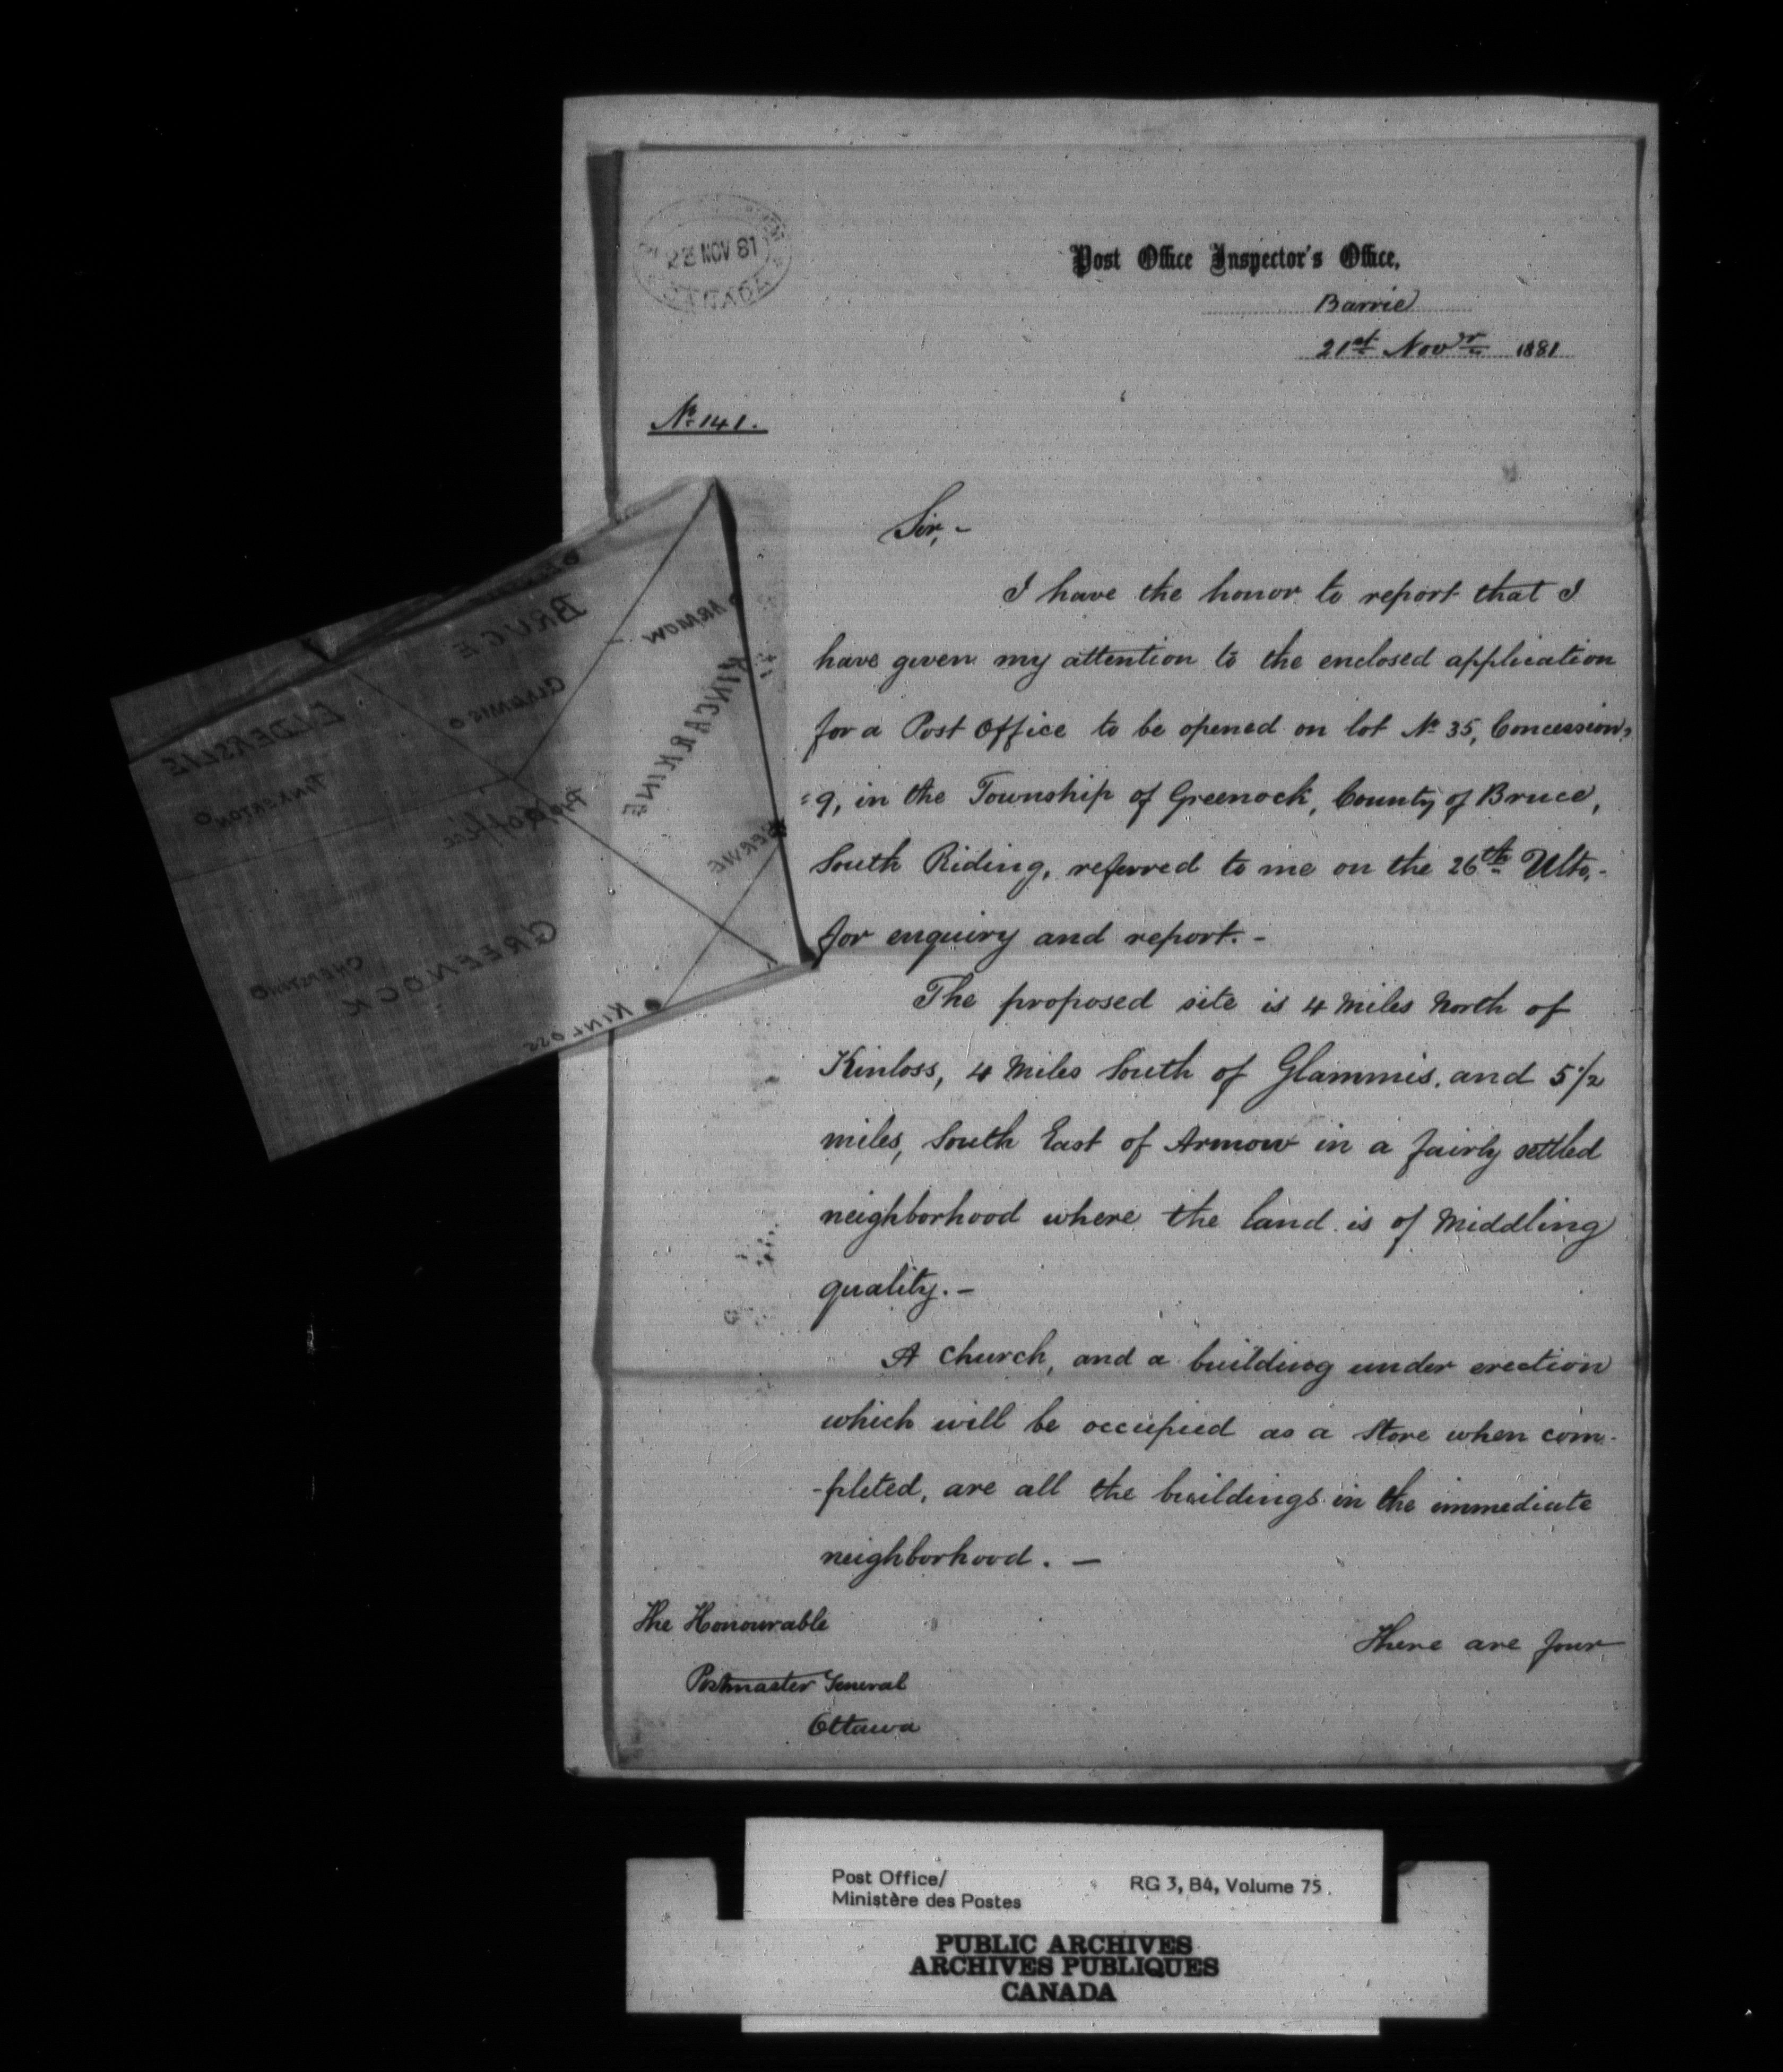 22 NOV 81
CANADA
Post Office Inspector's Office,
Barrie
21st Novr 1881
No 141.
Sir,-
I have the honor to report that I
have given my attention to the enclosed application
for a Post Office to be opened on lot No 35, Concession,
=9, in the Township of Greenock, County of Bruce,
South Riding, referred to me on the 26th Ulto,-
for enquiry and report.-
The proposed site is 4 Miles North of
Kinloss, 4 Miles South of Glammis, and 5 1/2
miles, South East of Armow in a fairly settled
neighborhood where the land is of Middling
quality.-
A Church, and a building under erection
which will be occupied as a Store when com-
-pleted, are all the buildings in the immediate
neighborhood. -
There are four
The Honourable
Postmaster General
Ottawa
BRUCE
ARMOW
KINCARDINE
GLAMMIS
ELDERSLIE
PINKERTON
Office
BERVIE
GREENOCK
CHEPSTOW
KINLOSS
Post Office/
Ministère des Postes
RG 3, B4, Volume 75.
PUBLIC ARCHIVES
ARCHIVES PUBLIQUES
CANADA